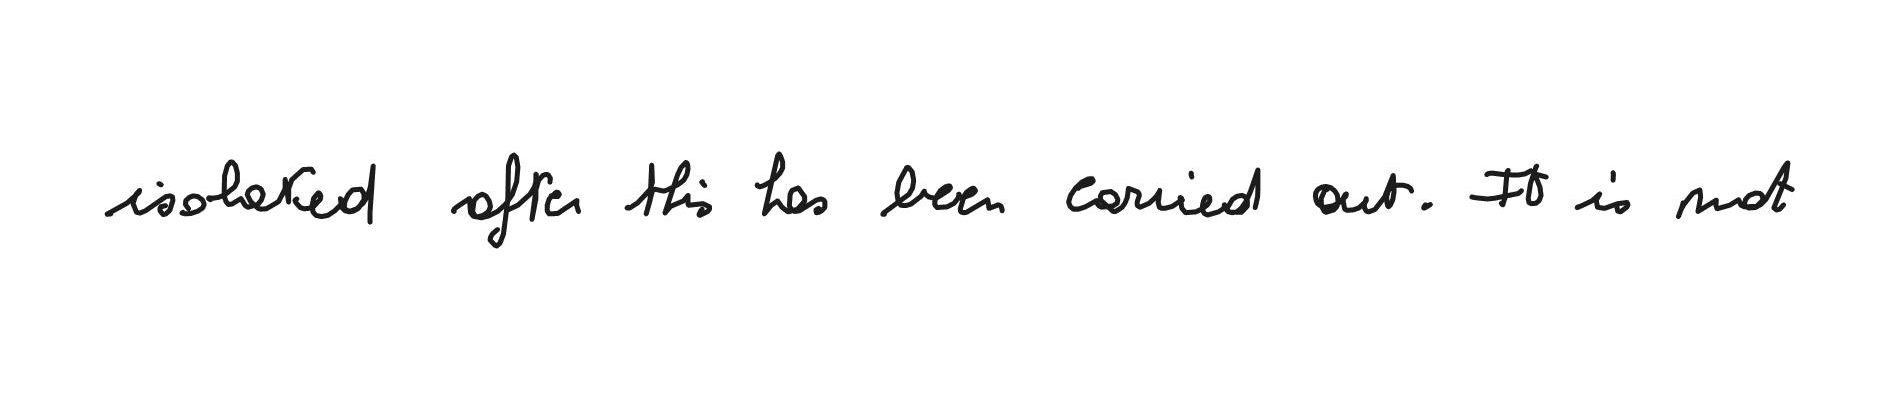 isolated after this has been carried out. It is not